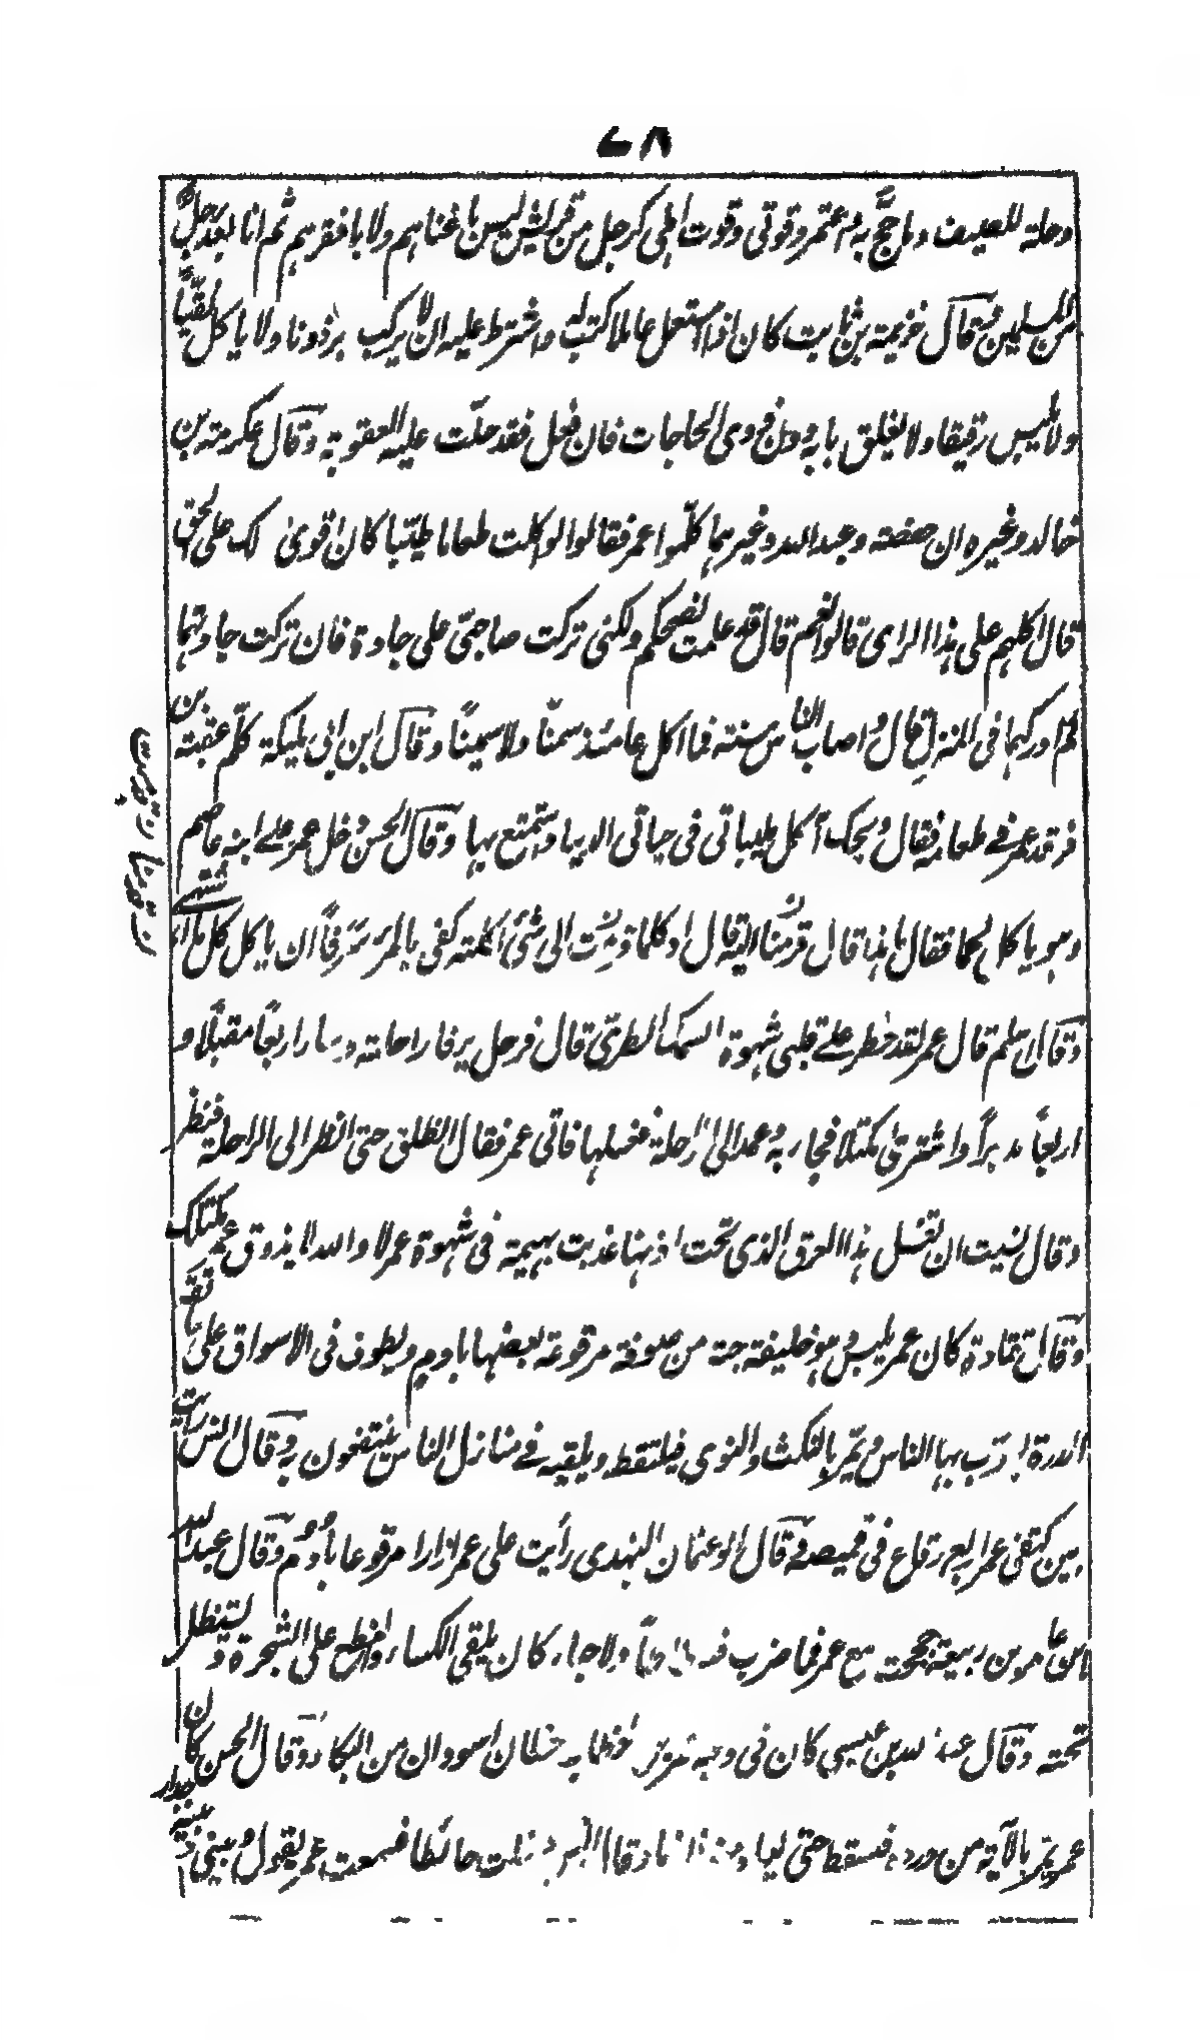 ٧٨
وحلة للصيف وما حج به واعتمر وقوتي وقوت اهلي كرجل من قريش ليس باغناهم ولا بافقرهم ثم انا بعد رجل
من المسلمين وقال خزيمة بن ثابت كان اذا استعمل عاملا كتب له واشترط عليه ان لا يركب برذونا ولا ياكل نقيا
ولا يلبس رقيقا ولا يغلق بابه دون ذوي الحاجات فان فعل فقد حلت عليه العقوبة وقال عكرمة بن
خالد وغيره ان حفصة وعبد الله وغيرهما كلموا عمر فقالوا لو اكلت طعاما طيبا كان اقوى لك على الحق
قال اكلهم على هذا الراي قالوا نعم قال قد علمت نصحكم ولكني تركت صاحبي على جادة فان تركت جادتهما
لم ادركهما في المنزل قال واصاب الناس سنة فما اكل عامئذ سمنا ولا سمينا وقال ابن ابي مليكة كلم عقبة بن
فرقد عمر في طعامه فقال ويحك آكل طيباتي في حياتي الدنيا واستمتع بها وقال الحسن دخل عمر على ابنه عاصم
وهو ياكل لحما فقال ما هذا قال قرمنا اليه قال او كلما قرمت الى شئ اكلته كفى بالمرء سرفا ان ياكل كل ما اشتهى
وقال اسلم قال عمر لقد خطر على قلبي شهوة السمك الطري قال فرحل يرفا راحلته وسار اربعا مقبلا و
اربعا مدبرا واشترى مكتلا فجاء به وعمد الى الراحلة فغسلها فاتى عمر فقال انطلق حتى انظر الى الراحلة فنظر
وقال نسيت ان تغسل هذا العرق الذي تحت اذنها عذبت بهيمة في شهوة عمر لا والله لا يذوق عمر مكتلك
وقال قتادة كان عمر يلبس وهو خليفة جبة من صوف مرقوعة بعضها بادم ويطوف في الاسواق على عاتقه
الدرة يؤدب بها الناس ويمر بالنكث والنوى فيلتقط ويلقيه في منازل الناس ينتفعون به وقال انس رايت
بين كتفي عمر اربع رقاع في قميصه وقال ابو عثمان النهدي رأيت على عمر ازارا مرقوعا بادم وقال عبد الله
بن عامر بن ربيعة حججت مع عمر فما ضرب فسطاطا ولا خباء كان يلقي الكساء والنطع على الشجرة ويستظل
تحته وقال عبد الله بن عيسى كان في وجه عمر بن الخطاب خطان اسودان من البكاء وقال الحسن كان
عمر يمر بالآية من ورده فيسقط حتى يعاد منها اياما وقال انس دخلت حائطا فسمعت عمر يقول وبيني وبينه جدار